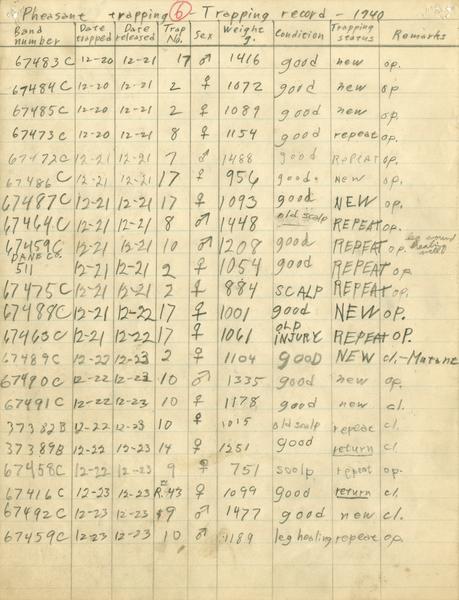 Pheasant trapping 6 - Trapping record - 1940
Band number Date trapped Date released Trap No. Sex Weight g. Condition Trapping status Remarks
67483C 12-20 12-21 17 ♂ 1416 good new op.
67484C 12-20 12-21 2 ♀ 1072 good new op
67485C 12-20 12-21 2 ♀ 1089 good new op.
67473C 12-20 12-21 8 ♀ 1154 good repeat op.
67472C 12-21 12-21 7 ♂ 1488 good REPEAT op.
67486C 12-21 12-21 17 ♀ 956 good. NEW op.
67487C 12-21 12-21 17 ♀ 1093 good NEW op.
67464C 12-21 12-21 8 ♂ 1448 old scalp REPEAT op.
67459C 12-21 12-21 10 ♂ 1208 good REPEAT op. leg around healing well
DANE CO. 511 12-21 12-21 2 ♀ 1054 good REPEAT op
67475C 12-21 12-21 2 ♀ 884 SCALP REPEAT op.
67488C 12-21 12-22 17 ♀ 1001 good NEW op.
67463C 12-21 12-22 17 ♀ 1061 OLD INJURY REPEAT OP.
67489C 12-22 12-23 2 ♀ 1104 good NEW cl.-Mutant
67490C 12-22 12-23 10 ♂ 1335 good new op.
67491C 12-22 12-23 10 ♀ 1178 good new cl.
37382B 12-22 12-23 10 ♀ 1015 old scalp repeat cl.
37389B 12-22 12-23 14 ♀ 1251 good return cl.
67458C 12-22 12-23 9 ♀ 751 scalp repeat op.
67416C 12-23 12-23 R.43 ♀ 1099 good return cl.
67492C 12-23 12-23 9 ♂ 1477 good new cl.
67459C 12-23 12-23 10 ♂ 1189 leg healing repeat op.